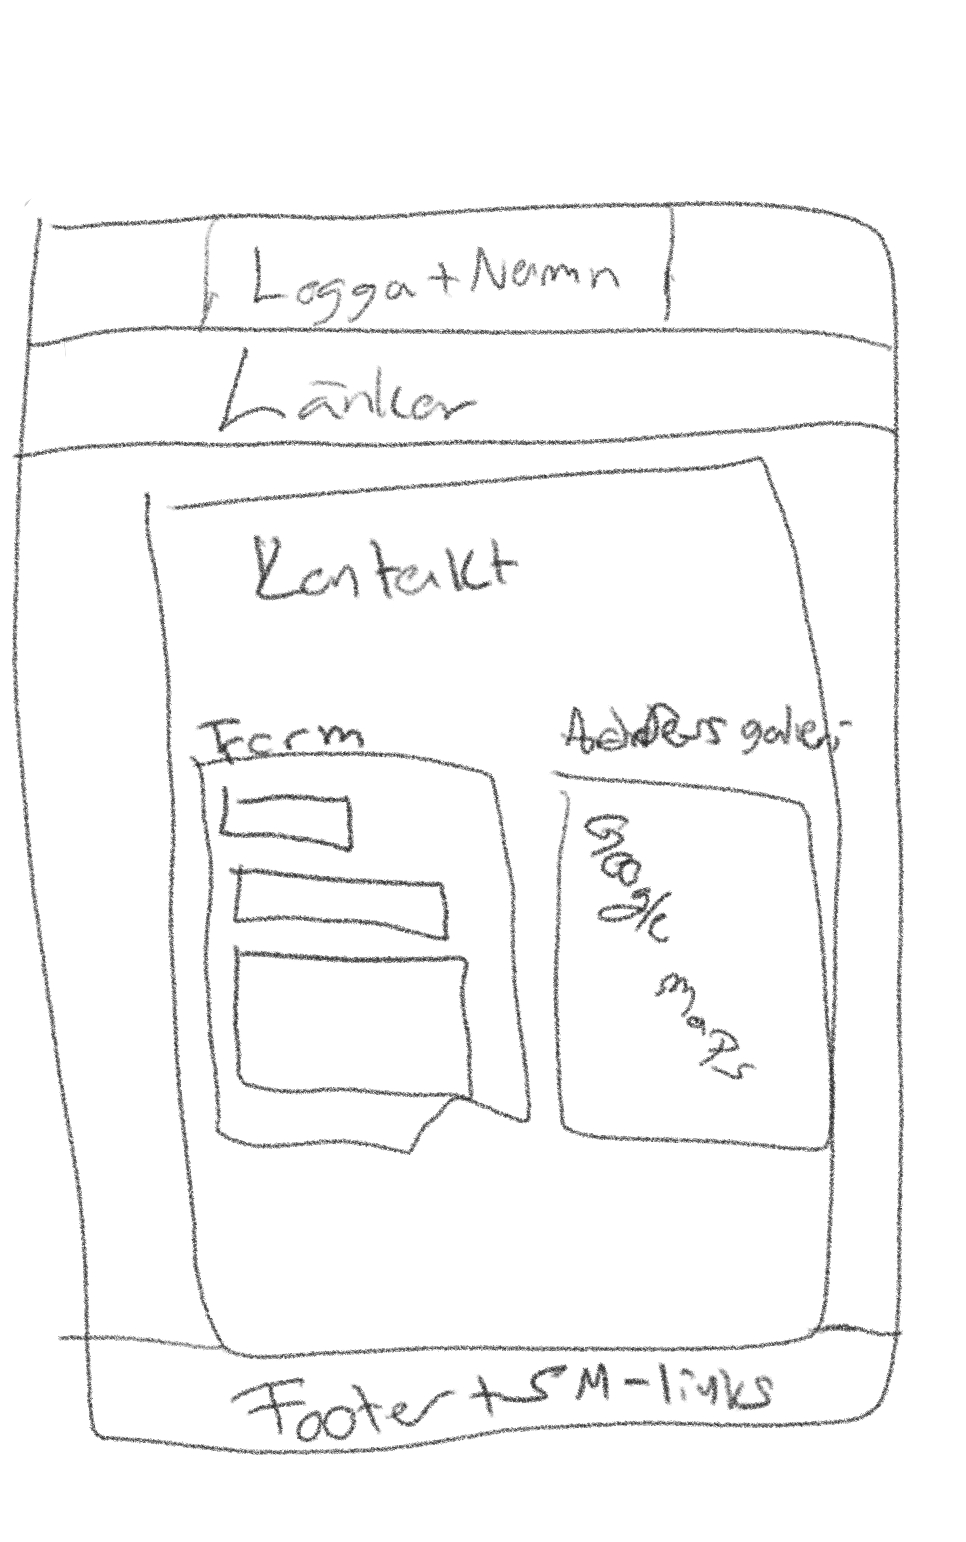 Logga + Namn
Länkar
Kontakt
Form
Google
maps
Footer + SM-links